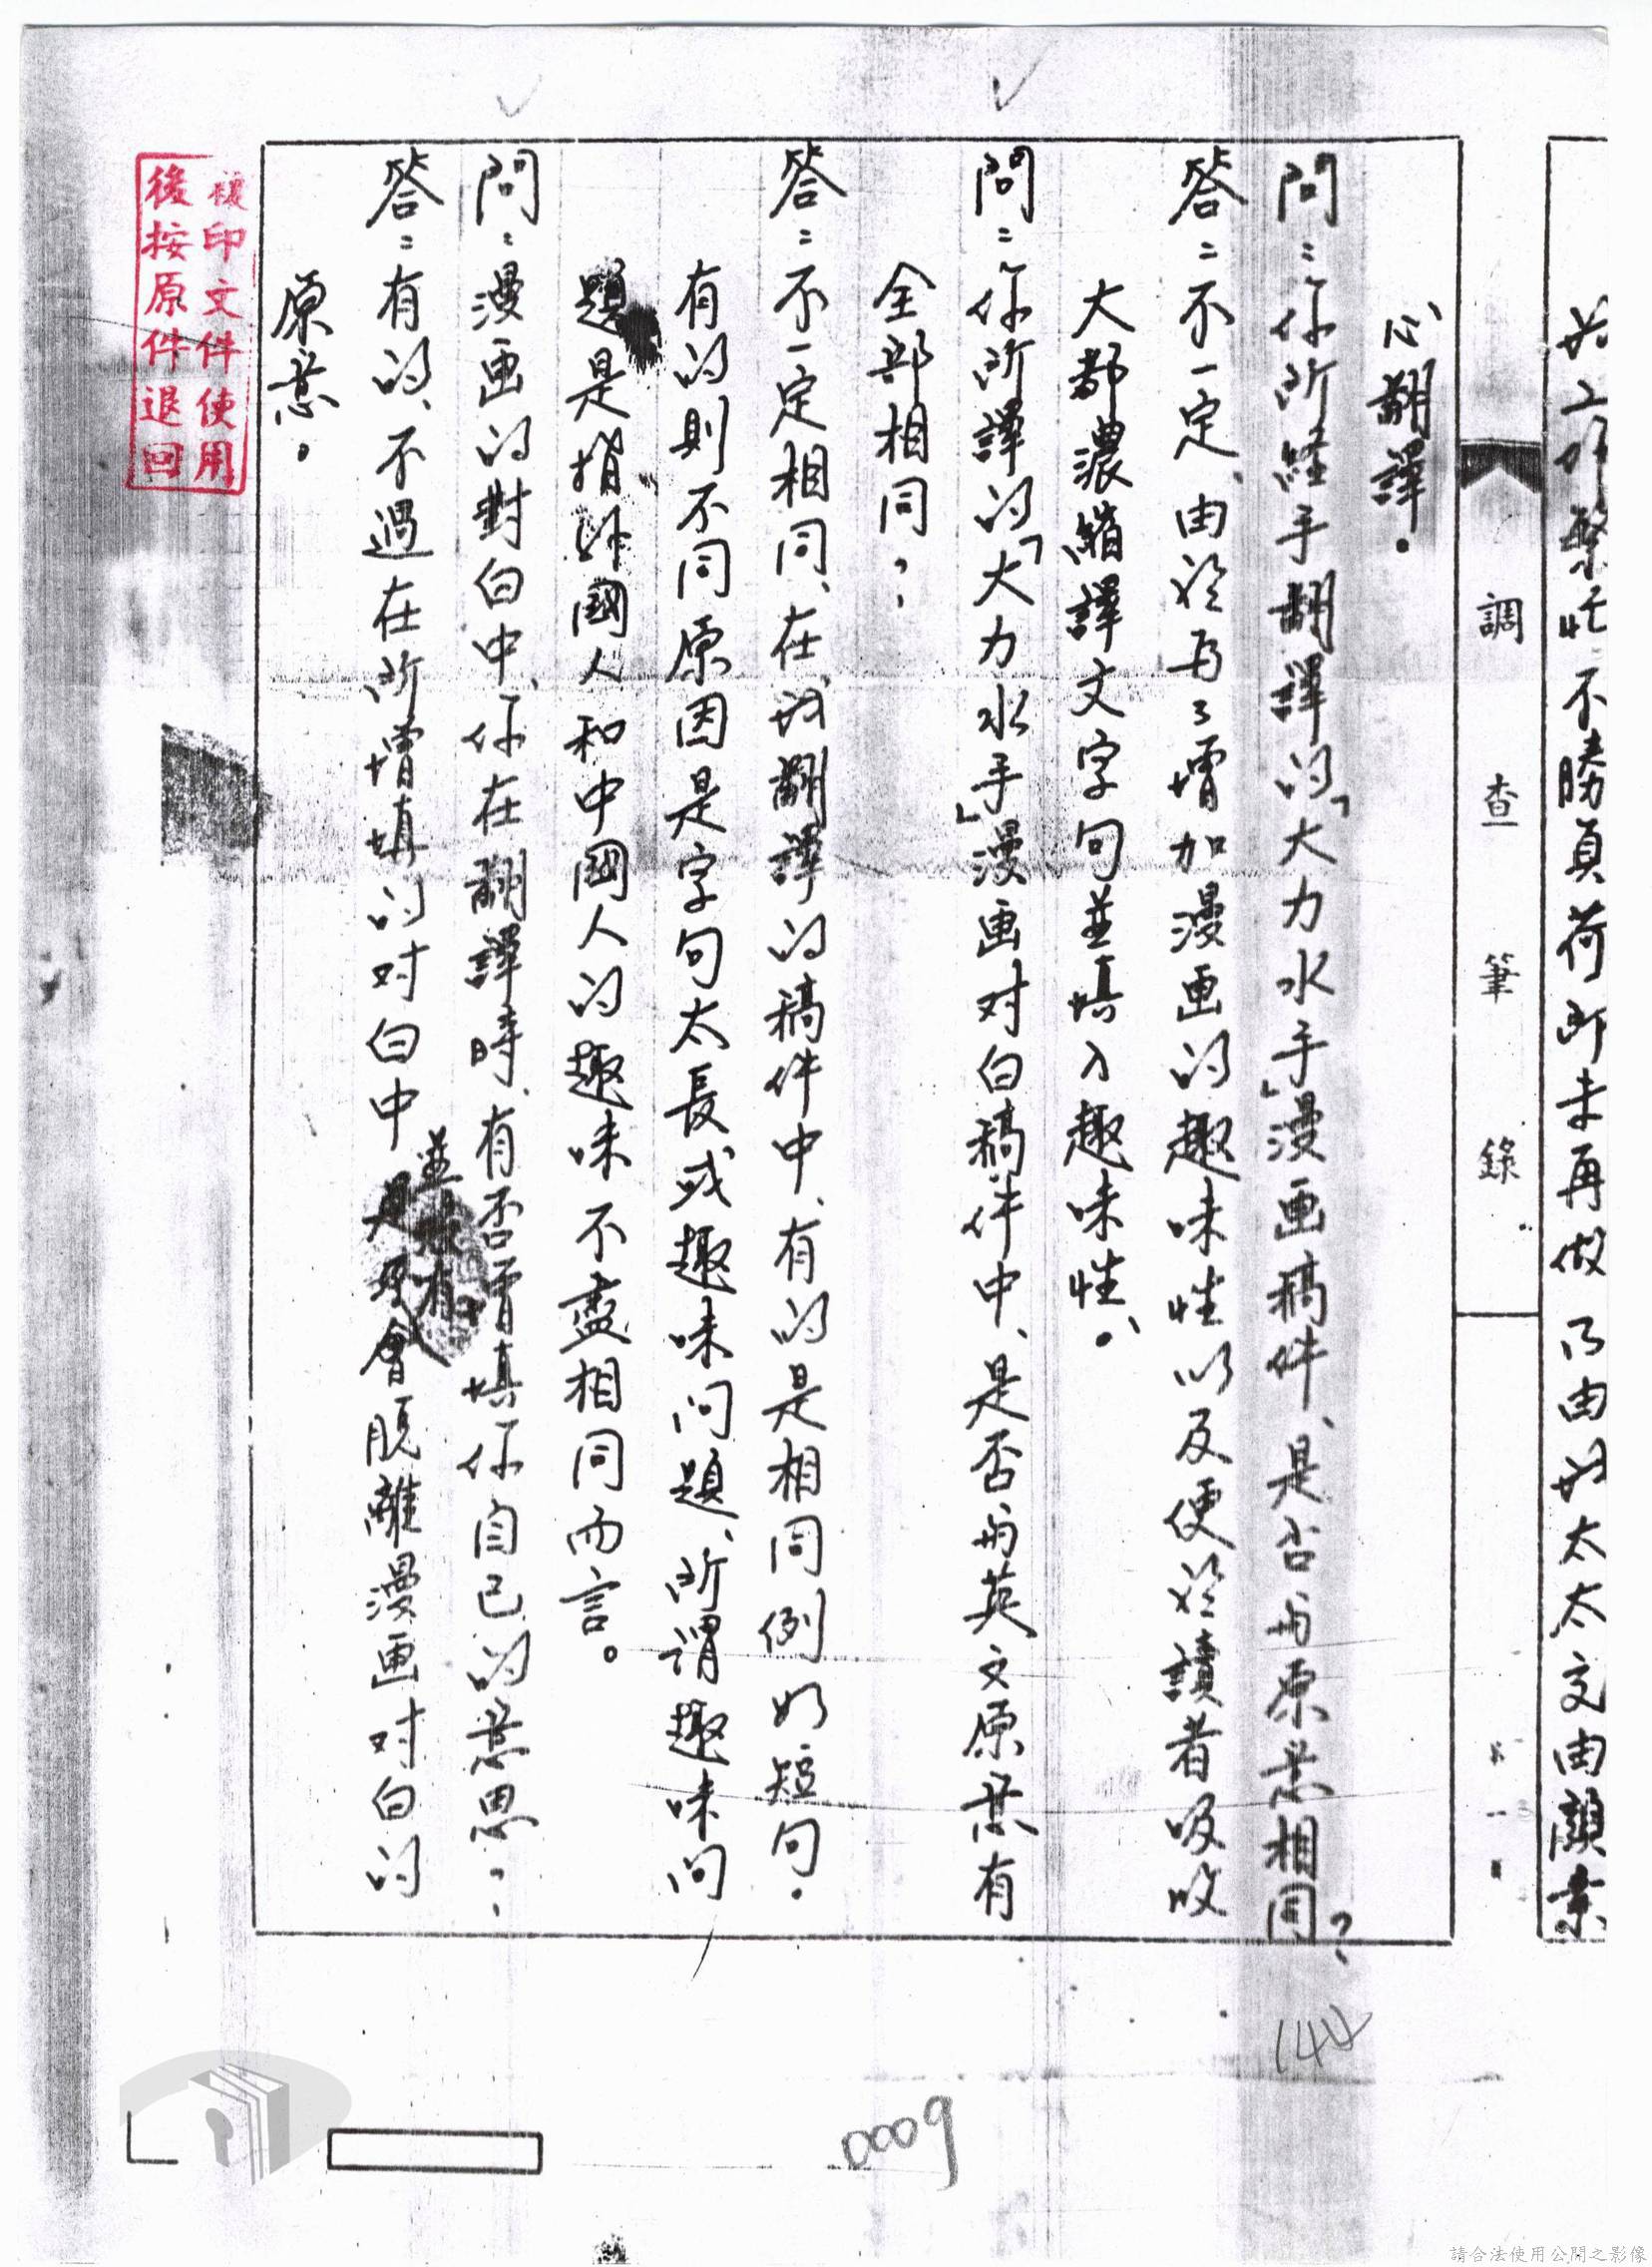 好工作繁忙不勝負荷所未再做乃由好太太交由顏素
心翻譯。
調查筆錄
問：你所経手翻譯的「大力水手」漫画稿件、是否与原意相同？
答：不一定、由於为了增加漫画的趣味性以及便於讀者吸收
大都濃縮譯文字句並填入趣味性。
問：你所譯的「大力水手」漫画对白稿件中、是否与英文原其有
全部相同？
答：不一定相同、在我翻譯的稿件中、有的是相同例如短句。
有的則不同原因是字句太長或趣味问題、所謂趣味问
題是指外國人和中國人的趣味不盡相同而言。
問：漫画的對白中、你在翻譯時、有否增填你自己的意思？
答：有的、不過在所增填的对白中並沒有脱離漫画对白的
原意。
複印文件使用
後按原件退回
144
0009
請合法使用公開之影像